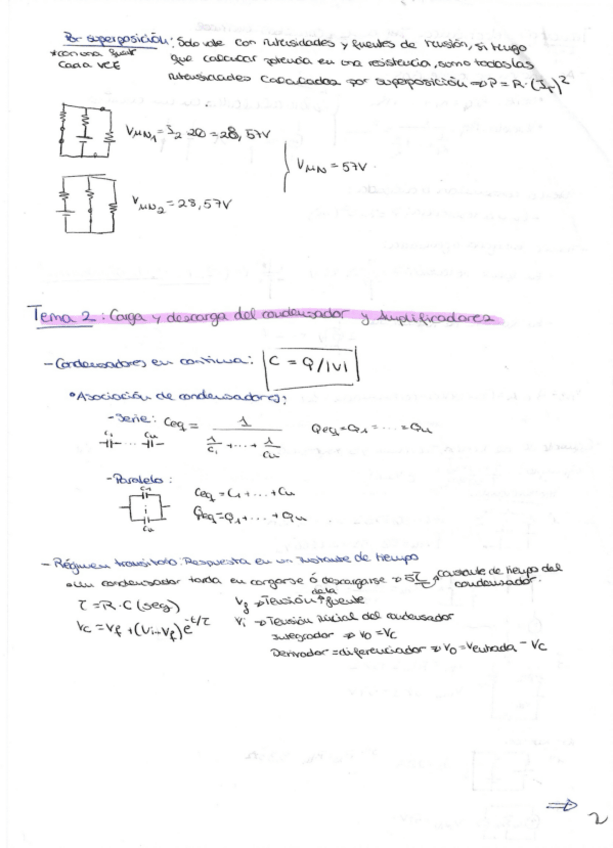 B- superposición: Solo vale con intensidades y fuentes de tensión, si tengo
*con una fuente que calcular potencia en una resistencia, sumo todas las
cada vez intensidades calculadas por superposición ⇒ P = R·(I_T)²
V_MN1 = I2·20 = 28,57V
V_MN = 57V.
V_MN2 = 28,57V
Tema 2: Carga y descarga del condensador y Amplificadores
- Condensadores en continua: C = Q/|V|
• Asociación de condensadores:
- Serie: Ceq = 1 / (1/C1 + ... + 1/Cn) Qeq = Q1 = ... = Qn
C1 Cn
- Paralelo: Ceq = C1 + ... + Cn
C1
Qeq = Q1 + ... + Qn
Cn
- Régimen transitorio: Respuesta en un instante de tiempo
• Un condensador tarda en cargarse ó descargarse ⇒ 5τ → constante de tiempo del
condensador.
τ = R·C (seg) Vf ⇒ Tensión de la fuente
Vc = Vf + (Vi - Vf) e^-t/τ Vi ⇒ Tensión inicial del condensador
Integrador ⇒ Vo = Vc
Derivador = diferenciador ⇒ Vo = Ventrada - Vc
⇒ 2